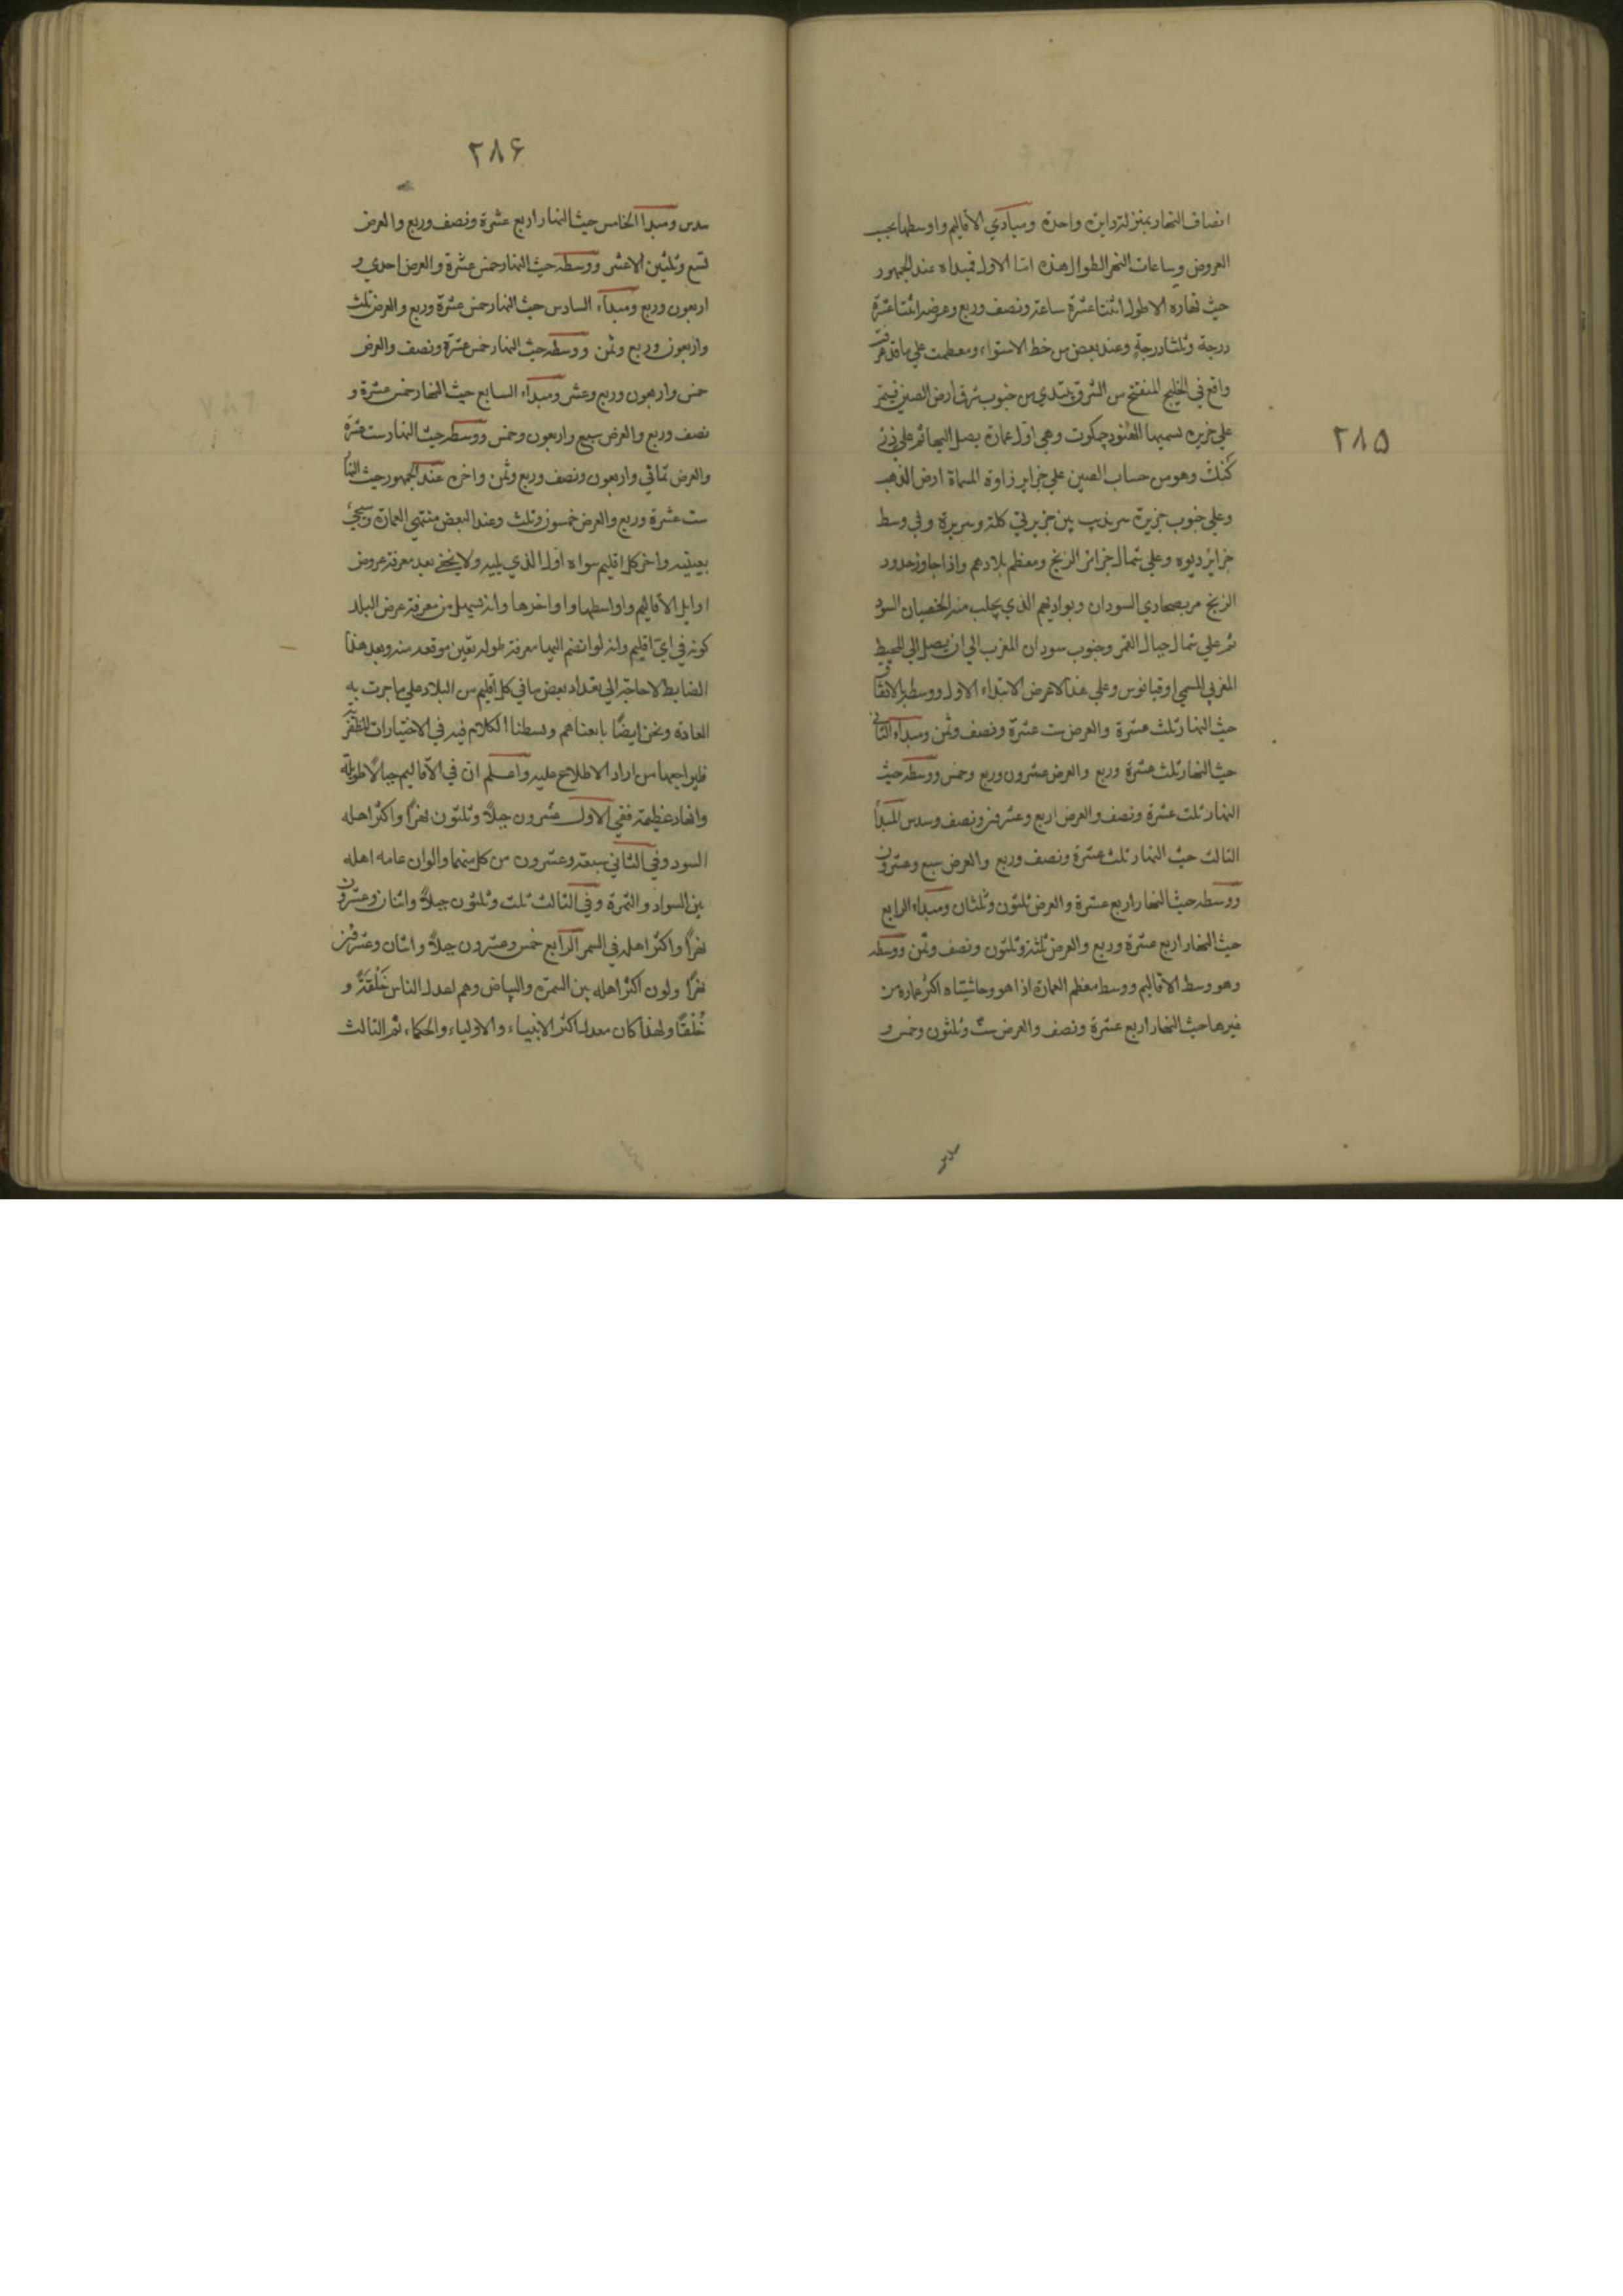 ٢٨٥
انصاف النهار بمنزلة دايرة واحدة ومبادي الاقاليم واوسطها بحسب
العروض وساعات النهر الطوال هذه اما الاول فمبداه عند الجمهور
حيث نهاره الاطول اثنتا عشرة ساعة ونصف وربع وعرضه اثنتا عشرة
درجة وثلثا درجة وعند بعض من خط الاستواء ومعظمت علي ما قد عرفت
واقع في الخليج المنفتح من الشرق يبتدي من جنوب شرق ارض الصين فيمر
علي جزيره تسميها الهنود جمكوت وهي اول عمارة يصل اليها ثم علي
كنك وهو من حساب الصين علي جزاير زاوة المسماة ارض الذهب
وعلي جنوب جزيرة سرنديب بين جزيرتي كلة وسريرة وفي وسط
جزاير ديوه وعلي شمال جزائر الزنج ومعظم بلادهم واذا جاوز حدود
الزنج مر بصحاري السودان وبواديهم الذي يجلب منه الخصيان السود
ثم علي شمال جبال القمر وجنوب سودان المغرب الي ان يصل الي المحيط
المغربي المسمي اوقيانوس وعلي هذا لا عرض لابتداء الاول ووسطه بالاتفاق
حيث النهار ثلث عشرة والعرض ست عشرة ونصف وثمن ومبداء الثاني
حيث النهار ثلث عشرة وربع والعرض عشرون وربع وخمس ووسطه حيث
النهار ثلث عشرة ونصف والعرض اربع وعشرون ونصف وسدس المبدأ
الثالث حيث النهار ثلث عشرة ونصف وربع والعرض سبع وعشرون
ووسطه حيث النهار اربع عشرة والعرض ثلثون وثلثان ومبداء الرابع
حيث النهار اربع عشرة وربع والعرض ثلثة وثلثون ونصف وثمن ووسطه
وهو وسط الاقاليم ووسط معظم العمارة اذا هو وحاشيتاه اكثر عمارة من
غيرها حيث النهار اربع عشرة ونصف والعرض ست وثلثون وخمس و
سدس
٢٨۶
سدس ومبدا الخامس حيث النهار اربع عشرة ونصف وربع والعرض
تسع وثلثين الا عشر ووسطه حيث النهار خمس عشرة والعرض احدي و
اربعون وربع ومبداء السادس حيث النهار خمس عشرة وربع والعرض ثلث
واربعون وربع وثمن ووسطه حيث النهار خمس عشرة ونصف والعرض
خمس واربعون وربع وعشر ومبداء السابع حيث النهار خمس عشرة و
نصف وربع والعرض سبع واربعون وخمس ووسطه حيث النهار ست عشرة
والعرض ثماني واربعون ونصف وربع وثمن واخره عند الجمهور حيث النهار
ست عشرة وربع والعرض خمسون وثلث وعند البعض منتهي العمارة وسيجئ
بعينيه واخر كل اقليم سواه اول الذي يليه ولا يخفي بعد معرفة عروض
اوايل الاقاليم واواسطها واواخرها وانه يسهل من معرفة عرض البلد
كونه في اي اقليم وانه لو انضم اليها معرفة طوله تعين موقعه منه وبعد هذا
الضابط لا حاجة الي تعداد بعض ما في كل اقليم من البلاد علي ما جرت به
العادة ونحن ايضًا تابعناهم وبسطنا الكلام فيه في الاختيارات المظفرية
فليراجعها من اراد الاطلاع عليه واعلم ان في الاقاليم جبالًا طويلة
وانهار عظيمة ففي الاول عشرون جبلًا وثلثون نهرًا واكثر اهله
السود وفي الثاني سبعة وعشرون من كل منهما والوان عامه اهله
بين السواد والسمرة وفي الثالث ثلث وثلثون جبلًا واثنان وعشرون
نهرًا واكثر اهله في السمر الرابع خمس وعشرون جبلًا واثنان وعشرون
نهرًا ولون اكثر اهله بين السمرة والبياض وهم اعدل الناس خَلْقةً و
خُلْقًا ولهذا كان معدل اكثر الانبياء والاولياء والحكماء ثم الثالث